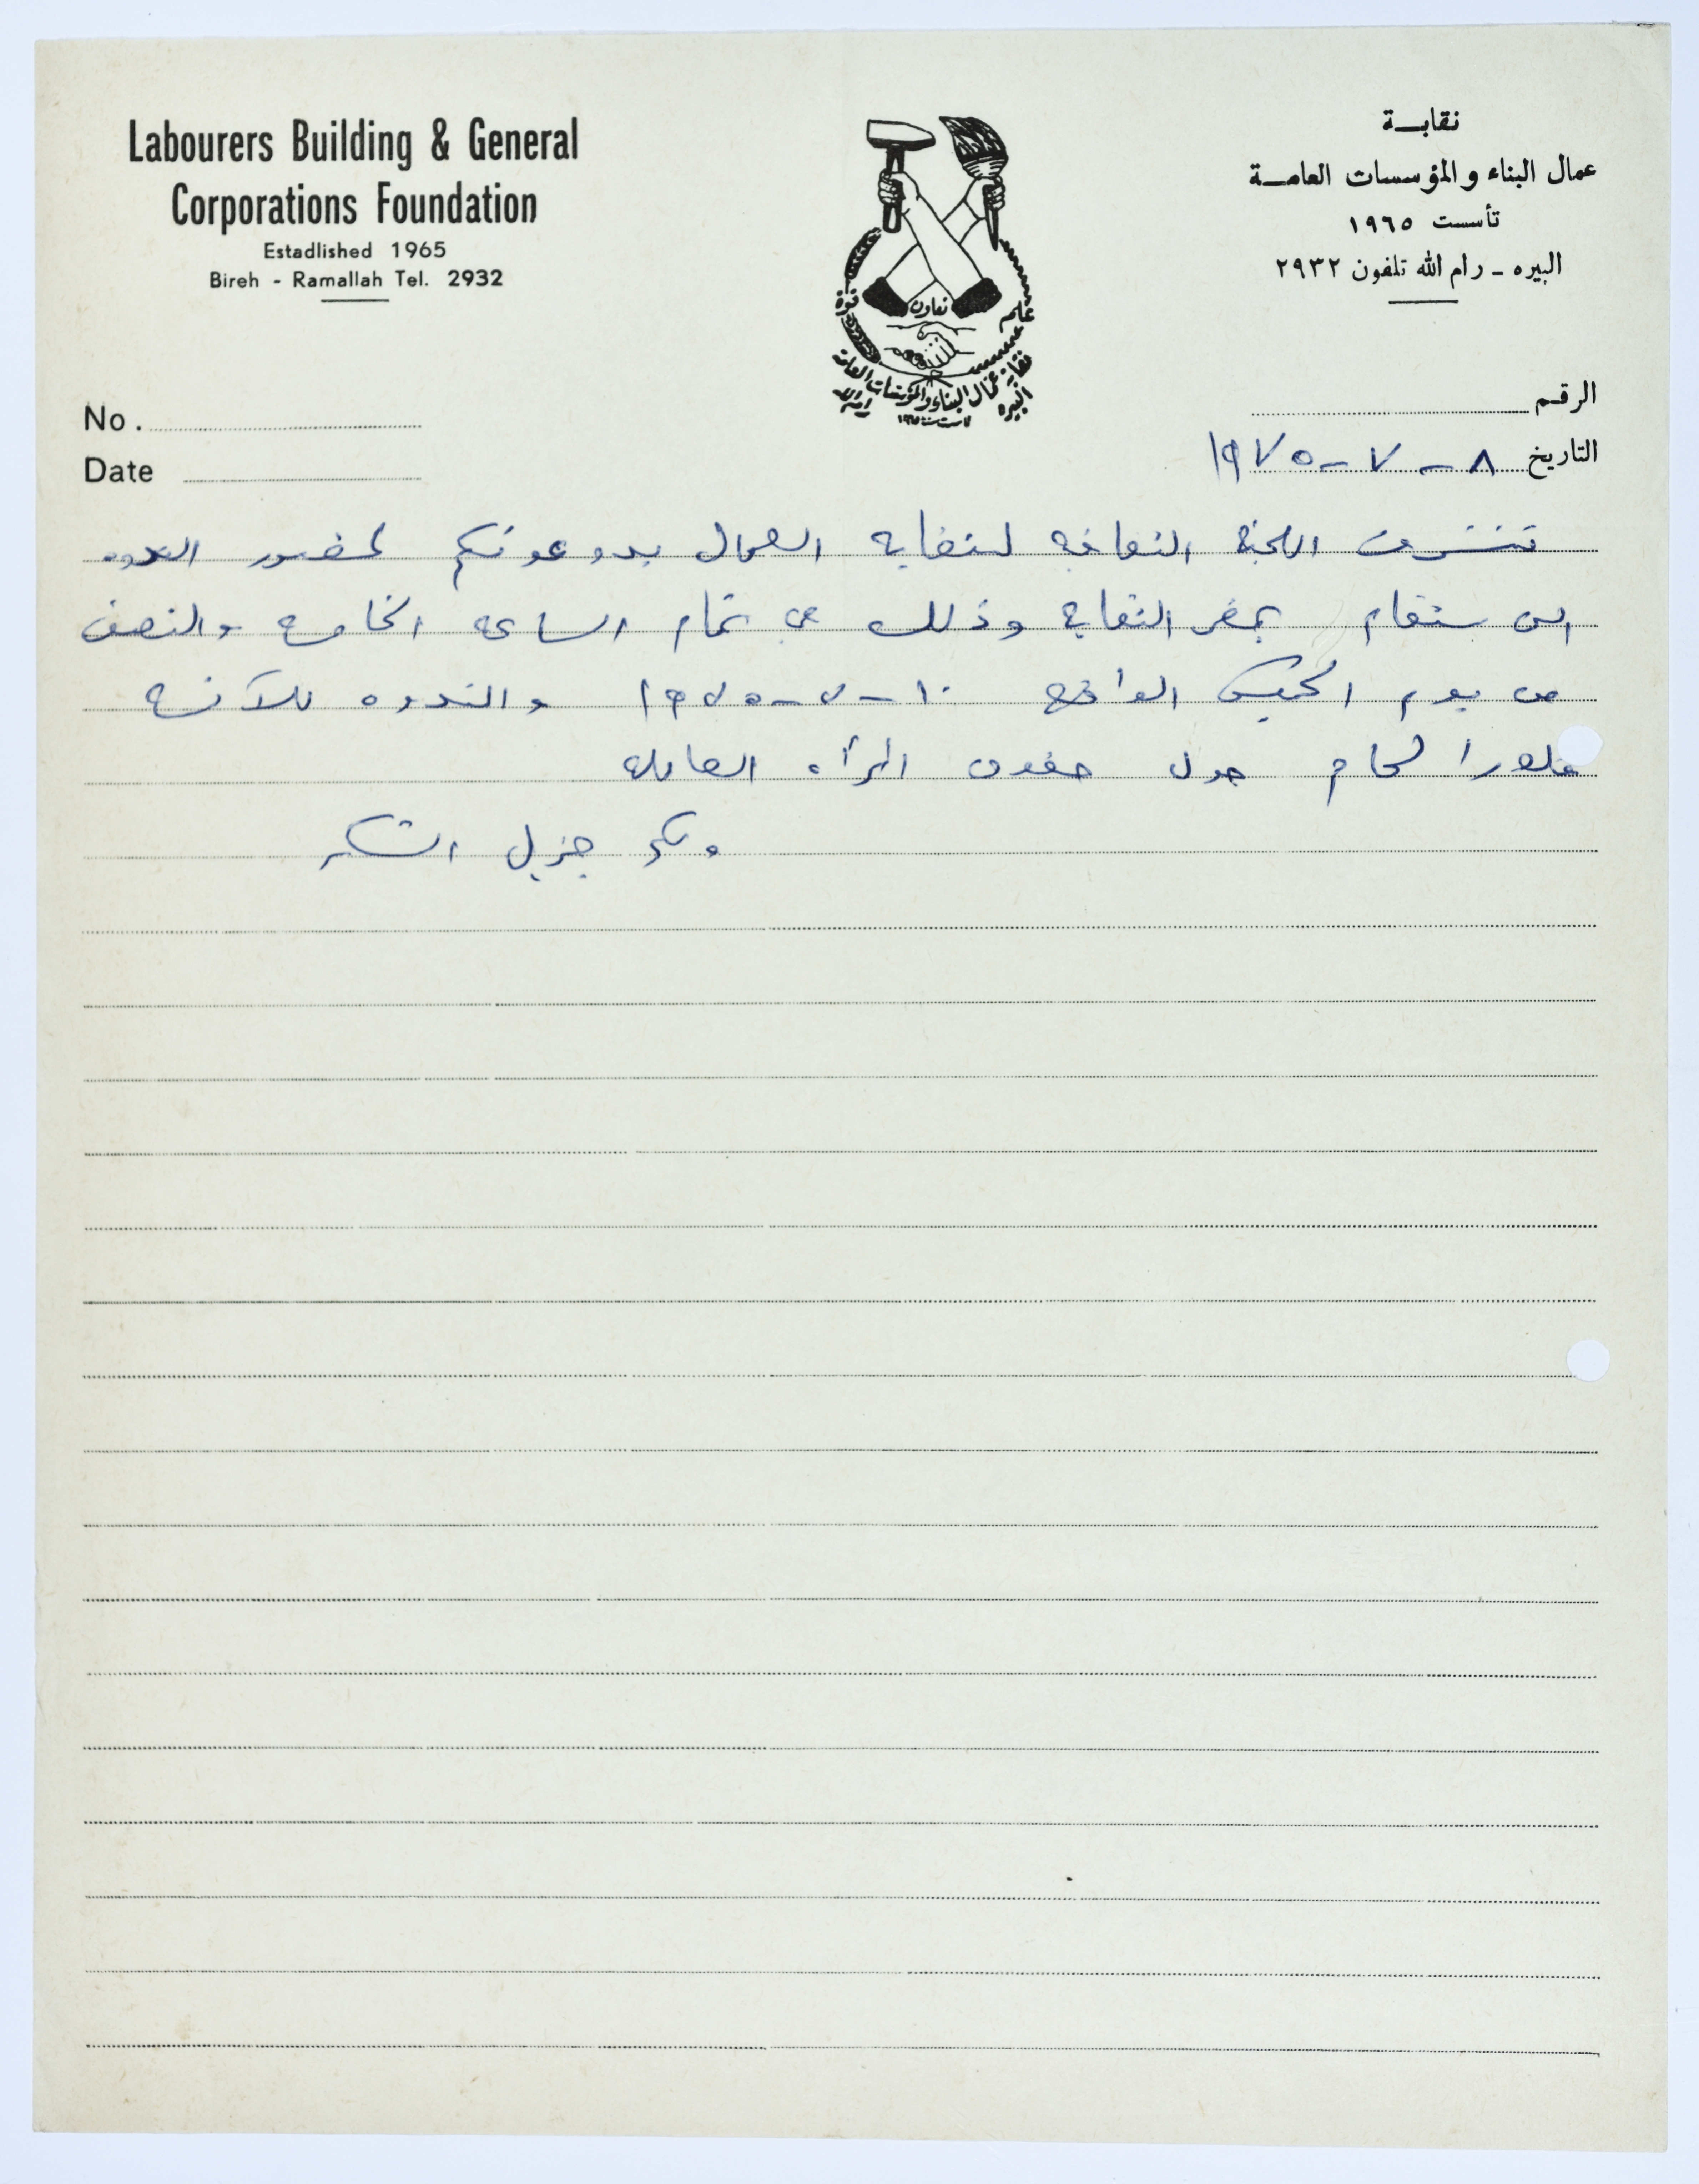 Labourers Building & General
Corporations Foundation
Estadlished 1965
Bireh - Ramallah Tel. 2932
نقابة
عمال البناء والمؤسسات العامة
تأسست ١٩٦٥
البيره - رام الله تلفون ٢٩٣٢
قوة
تعاون
علم
نقابة عمال البناء والمؤسسات العامة
البيره
رام الله
تأست سنة ١٩٦٥
No.
Date
الرقم
التاريخ ٨ - ٧ - ١٩٧٥
تتشرف اللجنة الثقافيه لنقابه العمال بدعوتكم لحضور الندوه
التي ستقام بمقر النقابة وذلك في تمام الساعه الخامسه والنصف
من يوم الخميس الواقع ١٠ - ٧ - ١٩٧٥ والندوه للآنسه
فلورا لحام حول حقوق المرأه العامله
ولكم جزيل الشكر